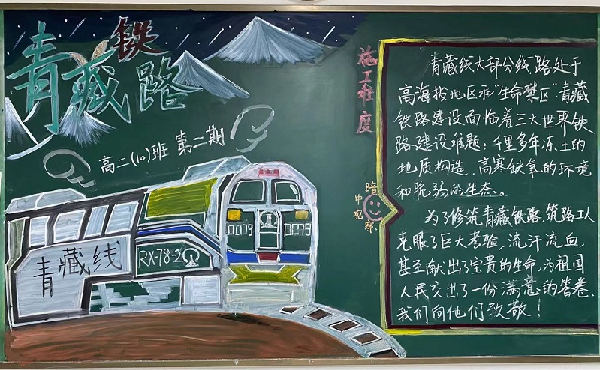 青藏铁路
高二(10)班 第二期
青藏线
施工难度
青藏铁大部分线路处于
高海拔地区和“生命禁区”青藏
铁路建设面临着三大世界铁
路建设难题：千里多年冻土的
地质构造、高寒缺氧的环境
和脆弱的生态。
为了修筑青藏铁路，筑路工人
克服了巨大考验，流汗流血，
甚至献出了宝贵的生命，为祖国
人民交出了一份满意的答卷，
我们向他们致敬！